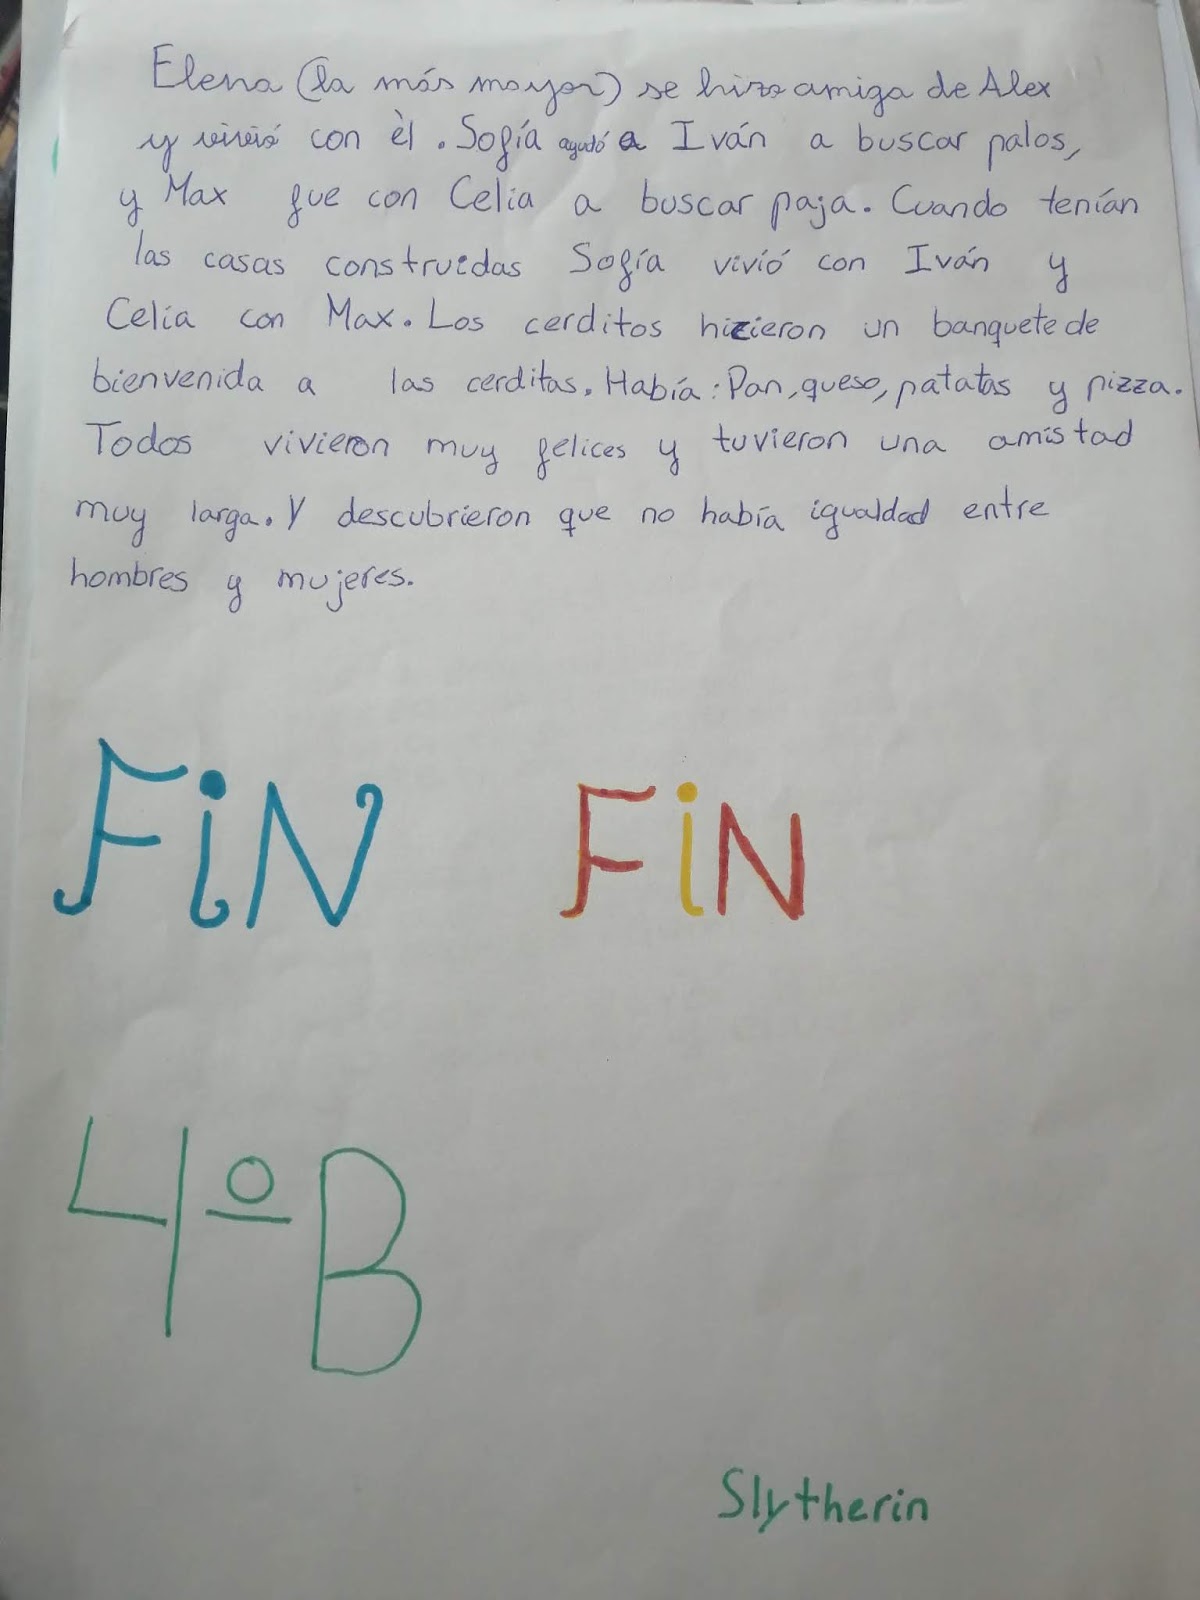 Elena (la más mayor) se hizo amiga de Alex
y vivió con èl. Sofía ayudó a Iván a buscar palos,
y Max fue con Celia a buscar paja. Cuando tenían
las casas construidas Sofía vivió con Iván y
Celia con Max. Los cerditos hicieron un banquete de
bienvenida a las cerditas. Había: Pan, queso, patatas y pizza.
Todos vivieron muy felices y tuvieron una amistad
muy larga. Y descubrieron que no había igualdad entre
hombres y mujeres.
FiN FiN
4º B
Slytherin